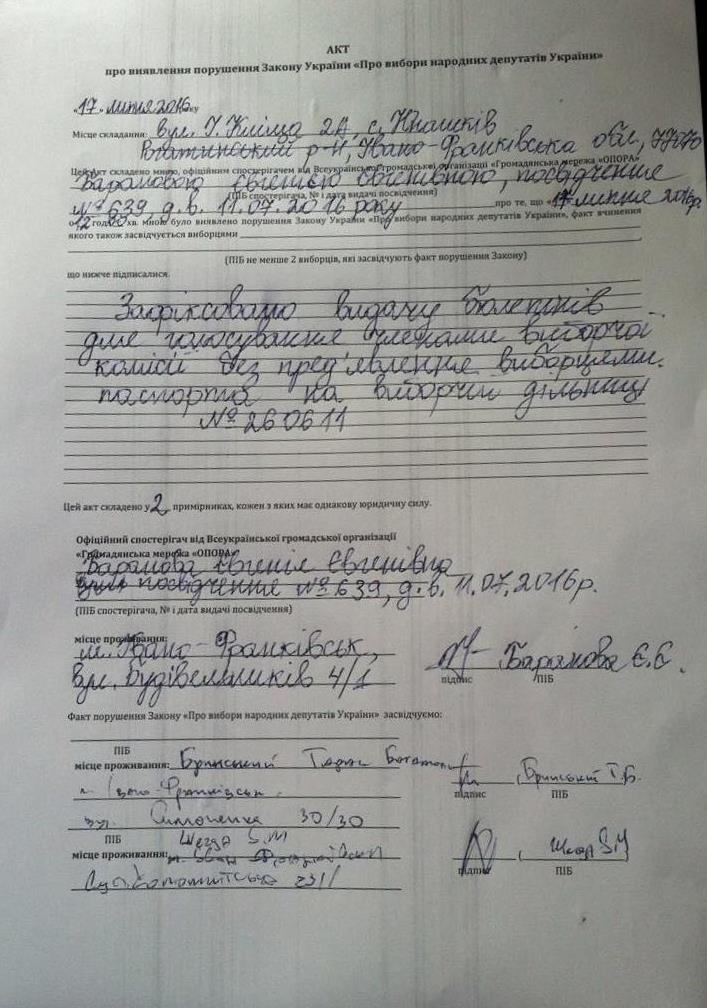 АКТ
про виявлення порушення Закону України «Про вибори народних депутатів України»
«17» липня 2016 року
Місце складання: вул. І. Кліща 2А, с. Княшків
Рогатинський р-н, Івано-Франківська обл, 77070
Цей Акт складено мною, офіційним спостерігачем від Всеукраїнської громадської організації «Громадянська мережа «ОПОРА»
Барановою Євгенією Євгенівною, посвідчення
(ПІБ спостерігача, № і дата видачі посвідчення)
№ 639 д.в. 11.07.2016 року про те, що «17» липня 2016р.
о 12 год. хв. мною було виявлено порушення Закону України «Про вибори народних депутатів України», факт вчинення
якого також засвідчується виборцями
(ПІБ не менше 2 виборців, які засвідчують факт порушення Закону)
що нижче підписалися.
Зафіксовано видачу бюлетнів
для голосування членами виборчої
комісії без пред'явлення виборцями
паспорта на виборчій дільниці
№ 260611
Цей акт складено у 2 примірниках, кожен з яких має однакову юридичну силу.
Офіційний спостерігач від Всеукраїнської громадської організації
«Громадянська мережа «ОПОРА»
Баранова Євгенія Євгенівна
посвідчення № 639, д.в. 11.07.2016р.
(ПІБ спостерігача, № і дата видачі посвідчення)
місце проживання:
м. Івано-Франківськ, Баранова Є.Є.
вул. Будівельників 4/1 підпис ПІБ
Факт порушення Закону «Про вибори народних депутатів України» засвідчуємо:
ПІБ
місце проживання: Бринський Тарас , Бринський Т.Б.
м. Івано-Франківськ підпис ПІБ
вул. 30/30
ПІБ
місце проживання: м. Івано ,
підпис ПІБ